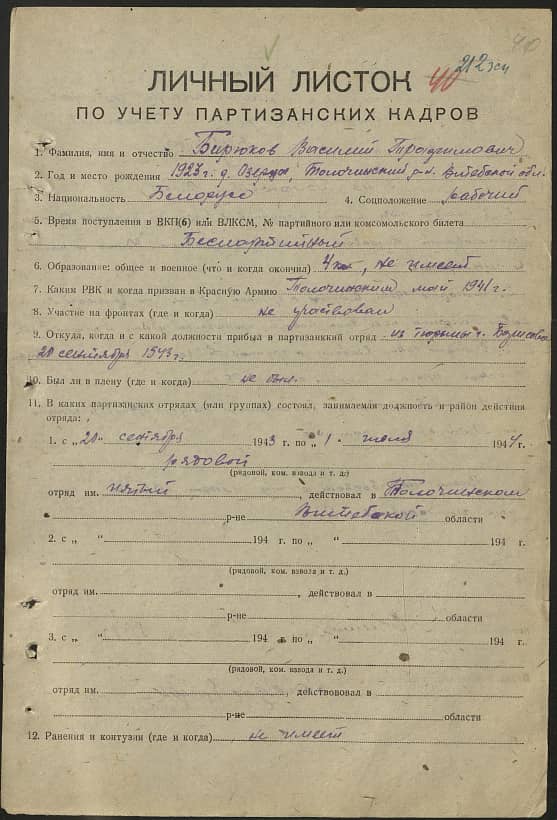 40
212
40
ЛИЧНЫЙ ЛИСТОК
ПО УЧЕТУ ПАРТИЗАНСКИХ КАДРОВ
1. Фамилия, имя и отчество Бирюков Василий Трафимович
2. Год и место рождения 1923 г. д. Озерцы, Толочинский р-н. Витебской обл.
3. Национальность Белорус 4. Соцположение рабочий
5. Время поступления в ВКП(б) или ВЛКСМ, № партийного или комсомольского билета
Беспартийный
6. Образование: общее и военное (что и когда окончил) 4 кл, не имеет
7. Каким РВК и когда призван в Красную Армию Толочинским май 1941 г.
8. Участие на фронтах (где и когда) не участвовал
9. Откуда, когда и с какой должности прибыл в партизанский отряд из тюрьмы г. Борисова
20 сентября 1943 г.
10. Был ли в плену (где и когда) не был.
11. В каких партизанских отрядах (или группах) состоял, занимаемая должность и район действия
отряда:
1. с „20 сентября 1943 г. по „1. июля 1944 г.
рядовой
(рядовой, ком. взвода и т. д.)
отряд им. пятый, действовал в Толочинском
р-не Витебской области
2. с „ “ 194 г. по „ “ 194 г.
(рядовой, ком. взвода и т. д.)
отряд им. , действовал в
р-не области
3. с „ “ 194 г. по „ “ 194 г.
(рядовой, ком. взвода и т. д.)
отряд им. , действововал в
р-не области
12. Ранения и контузии (где и когда) не имеет